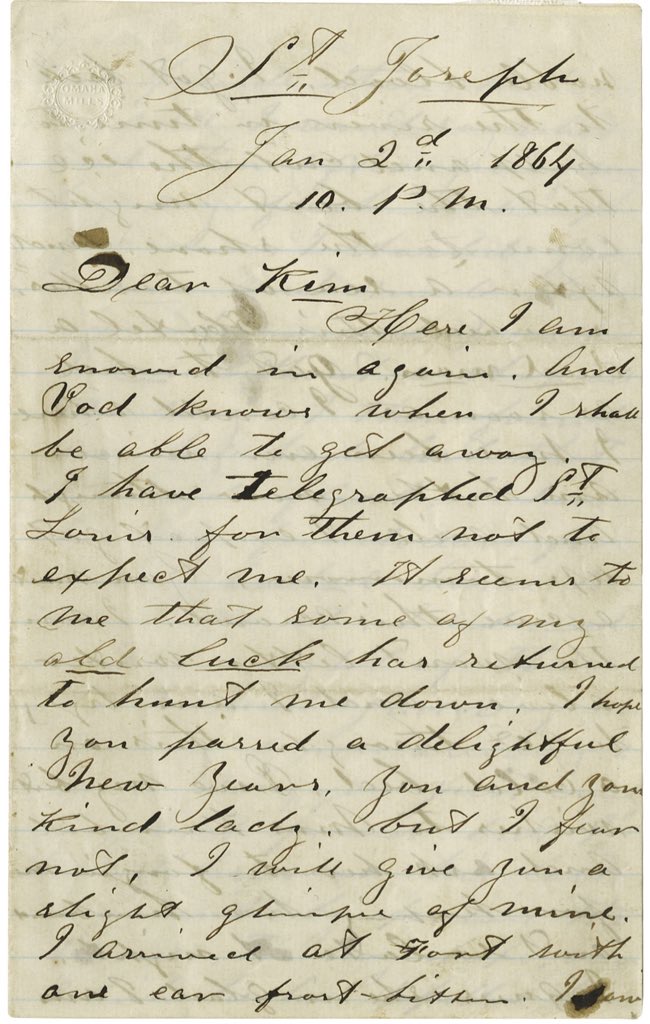 OMAHA
MILLS
St Joseph
Jan 2d 1864
10. P.M.
Dear Kim
Here I am
snowed in again. And
God knows when I shall
be able to get away.
I have Telegraphed St
Louis for them not to
expect me. It seems to
me that some of my
old luck has returned
to hunt me down. I hope
you passed a delightful
New Years, you and your
Kind lady, but I fear
not, I will give you a
slight glimpse of mine.
I arrived at Fort with
one ear frost-bitten. I